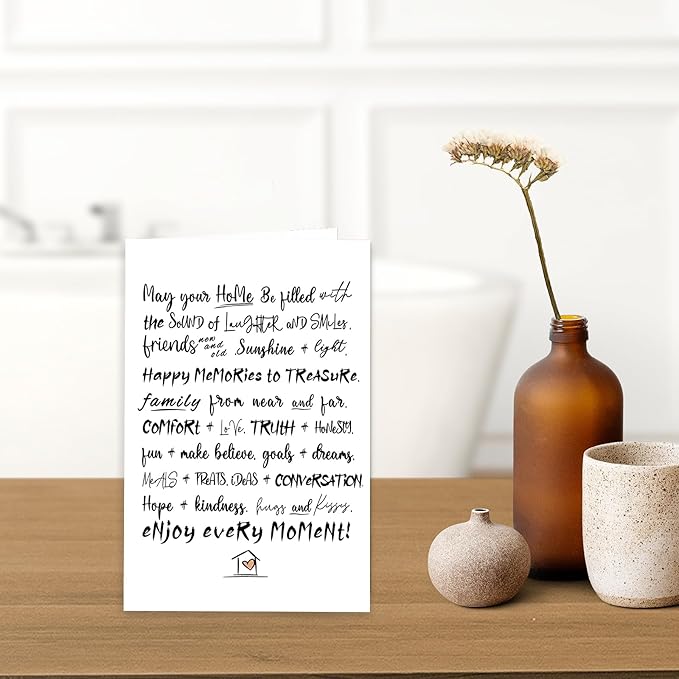 May your HoMe Be filled with
the SoUND of LaugHTER and SMiles.
friends new and old. Sunshine + light.
Happy MeMoRies to TReaSuRe.
family from near and far.
COMfoRt + LoVe. TRUtH + HoNeSty.
fun + make believe, goals + dreams.
MeALS + TReATS, iDeAS + CoNVeRSATioN.
Hope + kindness. hugs and Kisses.
eNjoy eveRy MoMeNt!